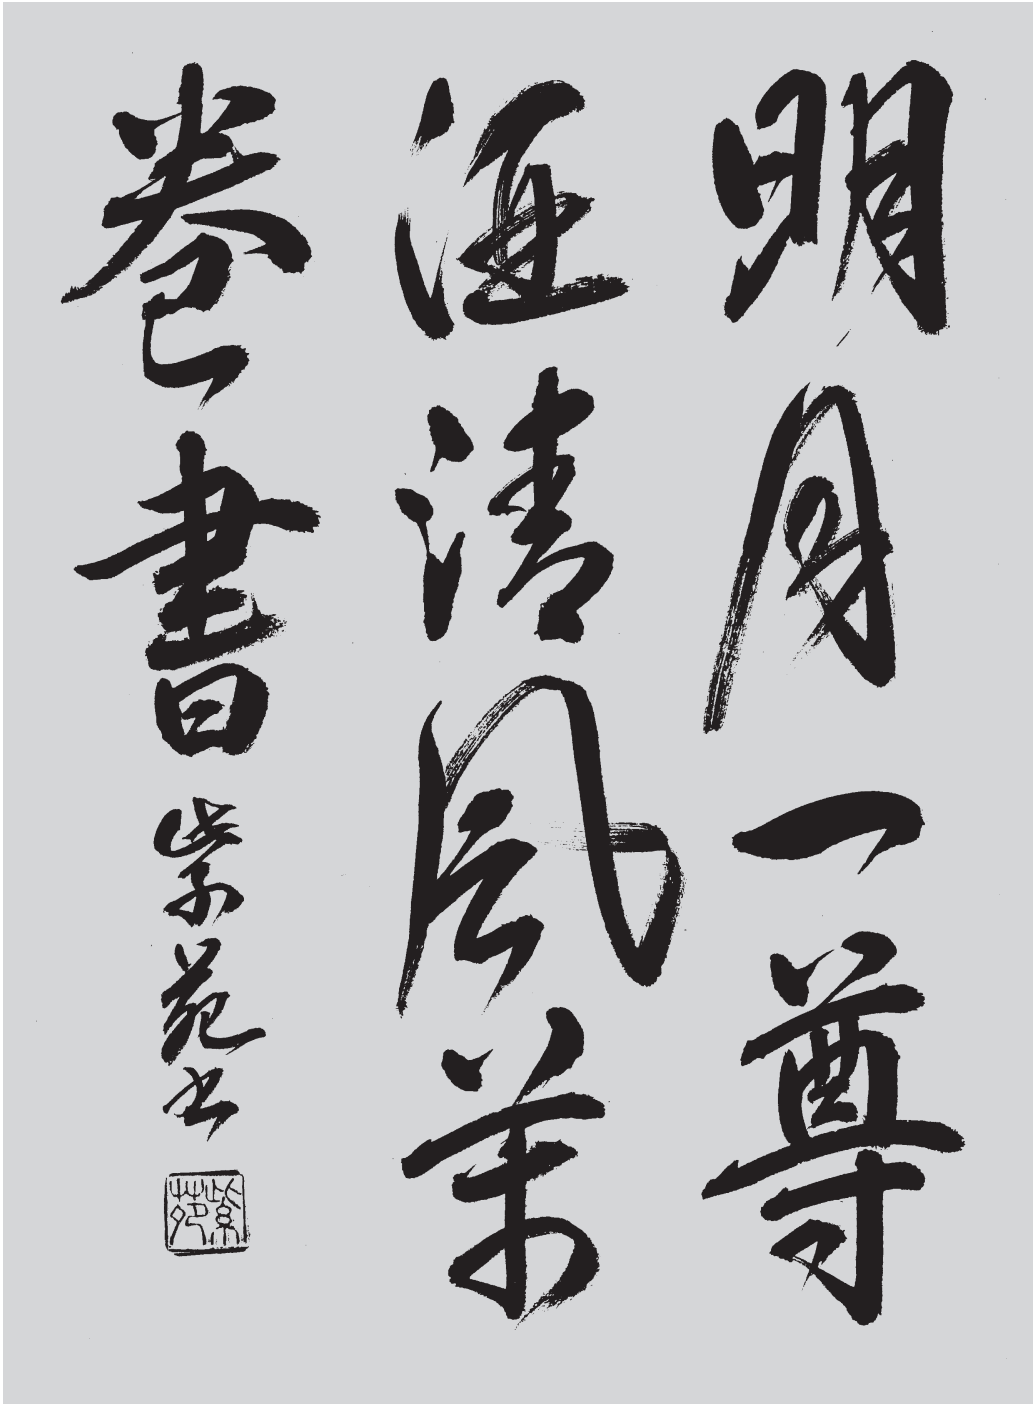 明月一尊
酒清風萬
卷書紫苑書
紫苑